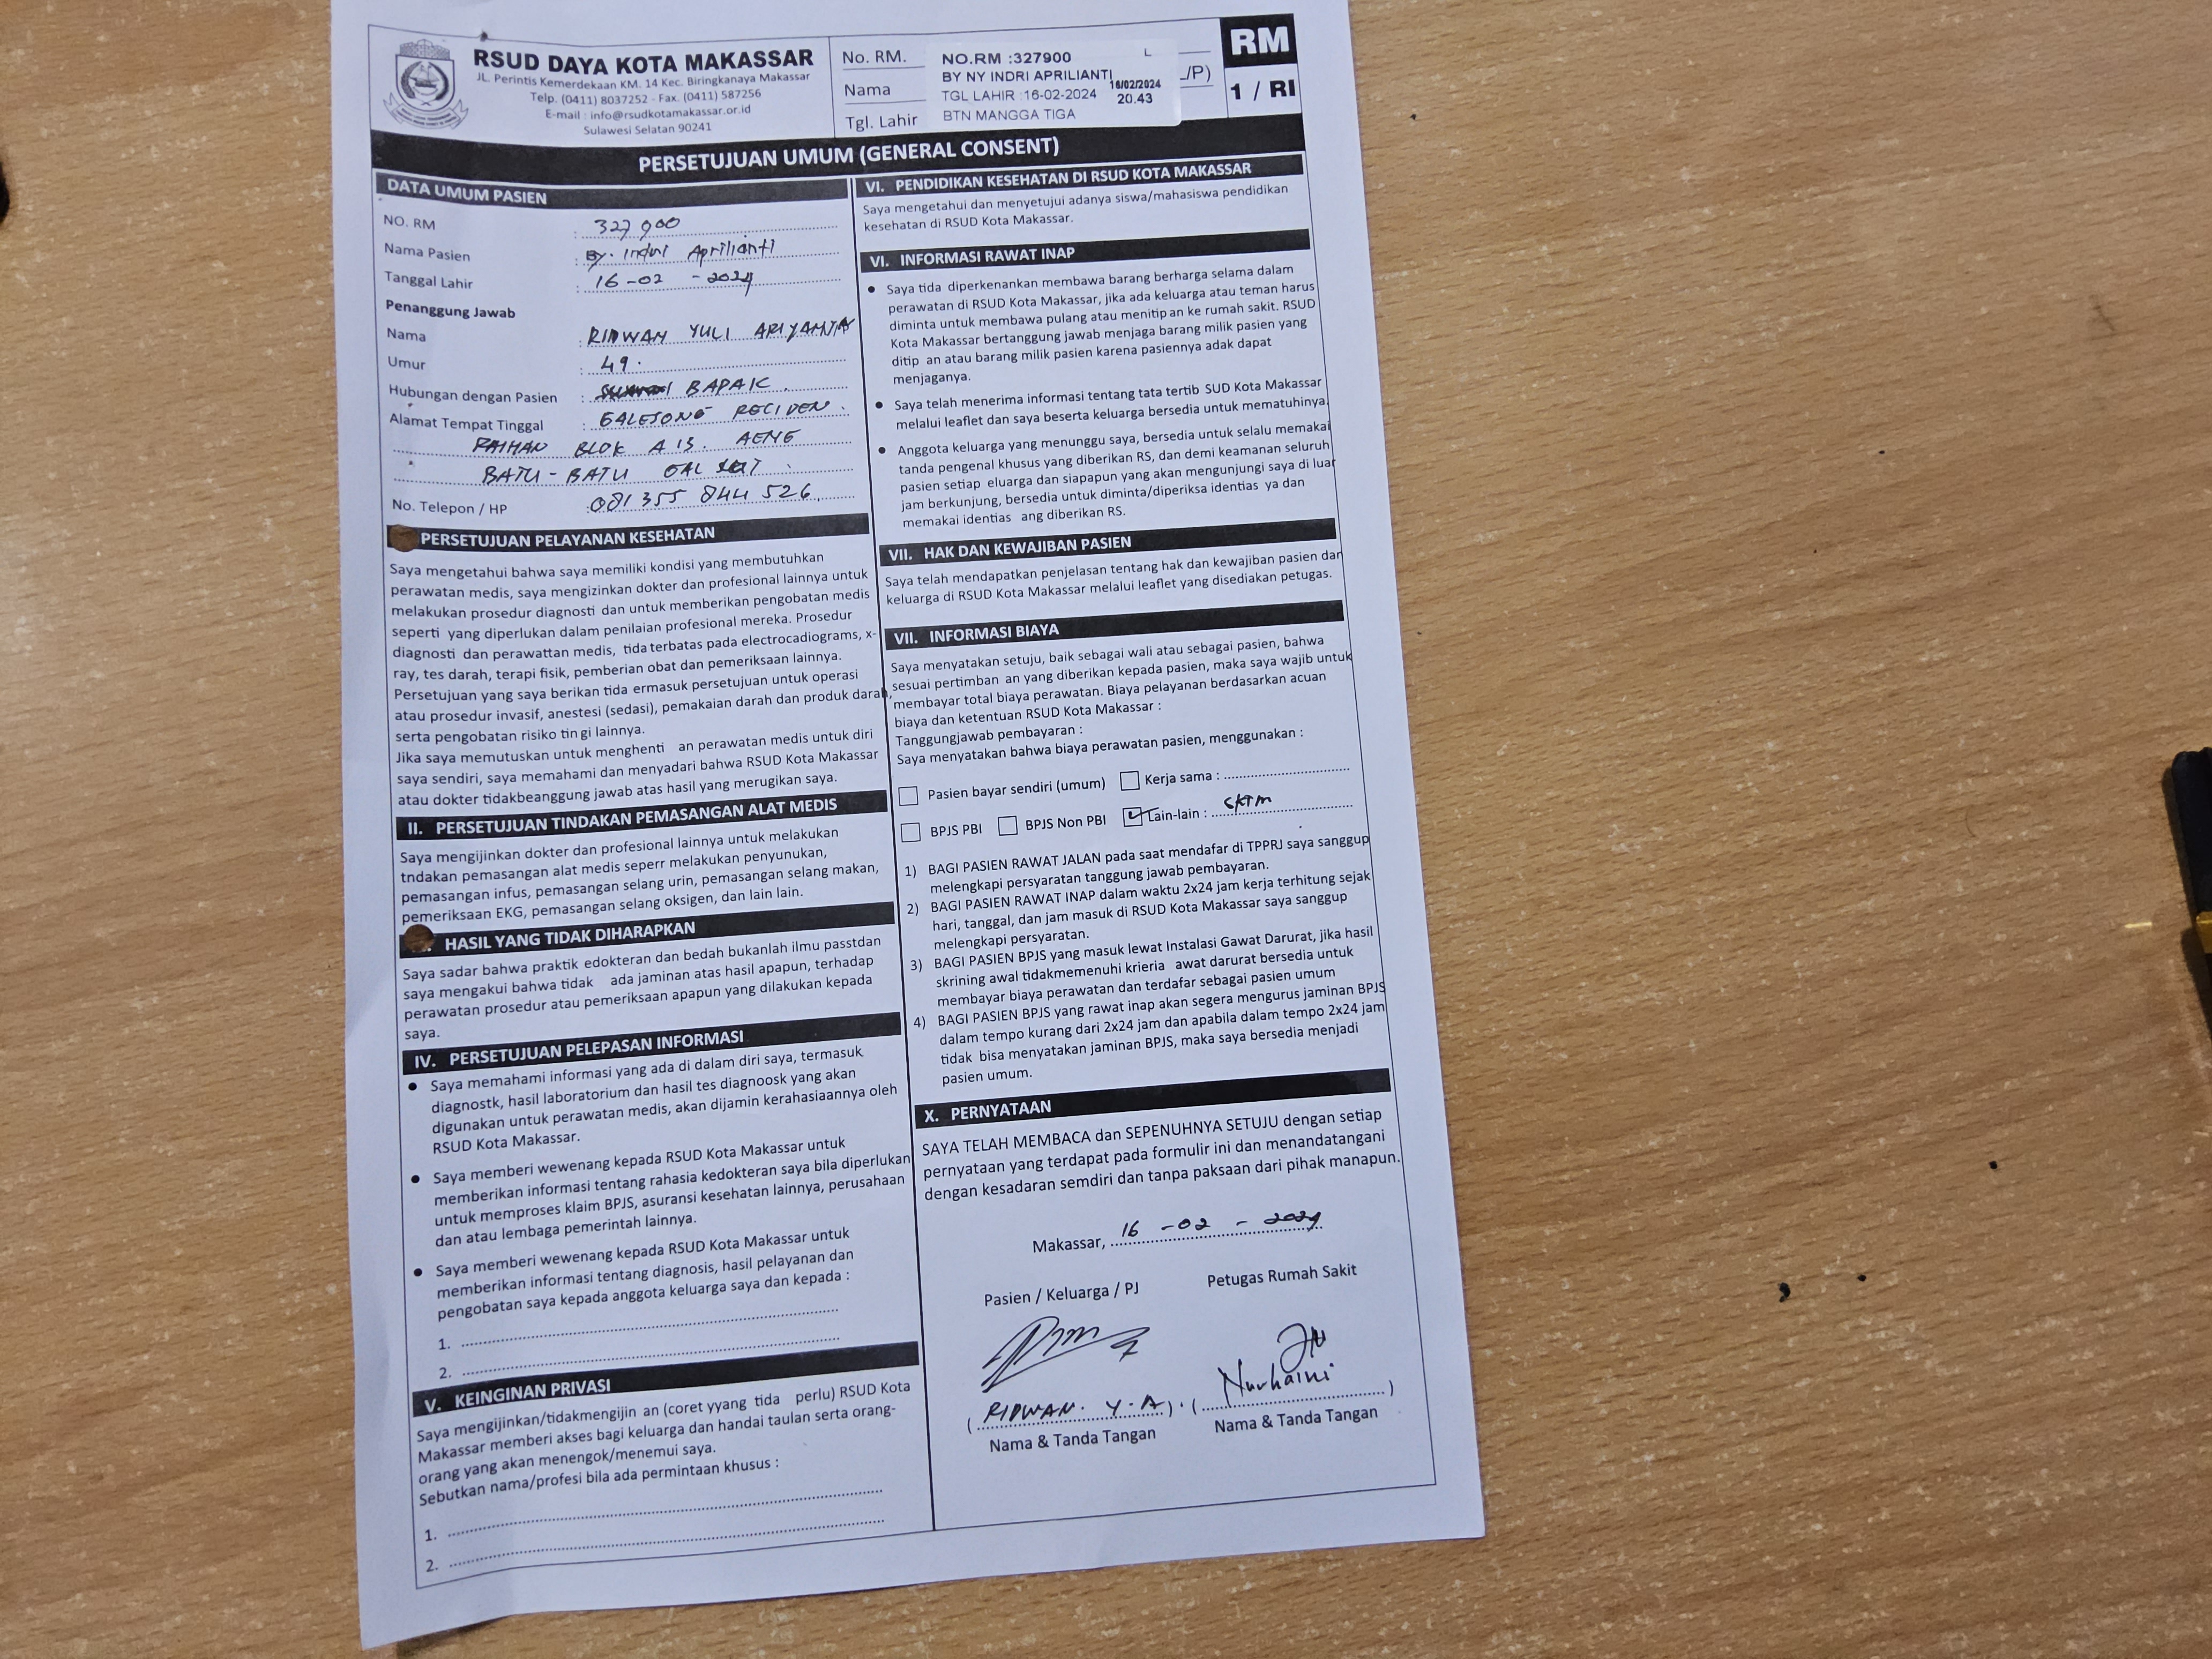 RSUD DAYA KOTA MAKASSAR
JL. Perintis Kemerdekaan KM. 14 Kec. Biringkanaya Makassar
Telp. (0411) 8037252 - Fax. (0411) 587256
E-mail : info@rsudkotamakassar.or.id
Sulawesi Selatan 90241
No. RM.
Nama
Tgl. Lahir
NO.RM :327900 L
BY NY INDRI APRILIANTI
TGL LAHIR :16-02-2024 16/02/2024
20.43
BTN MANGGA TIGA
/P)
RM
1 / RI
PERSETUJUAN UMUM (GENERAL CONSENT)
DATA UMUM PASIEN
NO. RM : 327900
Nama Pasien : By. Indri Aprilianti
Tanggal Lahir : 16-02-2024
Penanggung Jawab
Nama : RIDWAN YULI ARIYANTO
Umur : 49.
Hubungan dengan Pasien : BAPAK
Alamat Tempat Tinggal :
BLOK A 13.
BATU - BATU
No. Telepon / HP : 081 355 044 526
PERSETUJUAN PELAYANAN KESEHATAN
Saya mengetahui bahwa saya memiliki kondisi yang membutuhkan
perawatan medis, saya mengizinkan dokter dan profesional lainnya untuk
melakukan prosedur diagnosti dan untuk memberikan pengobatan medis
seperti yang diperlukan dalam penilaian profesional mereka. Prosedur
diagnosti dan perawattan medis, tida terbatas pada electrocadiograms, x-
ray, tes darah, terapi fisik, pemberian obat dan pemeriksaan lainnya.
Persetujuan yang saya berikan tida ermasuk persetujuan untuk operasi
atau prosedur invasif, anestesi (sedasi), pemakaian darah dan produk darah,
serta pengobatan risiko tin gl lainnya.
Jika saya memutuskan untuk menghenti an perawatan medis untuk diri
saya sendiri, saya memahami dan menyadari bahwa RSUD Kota Makassar
atau dokter tidakbeanggung jawab atas hasil yang merugikan saya.
II. PERSETUJUAN TINDAKAN PEMASANGAN ALAT MEDIS
Saya mengijinkan dokter dan profesional lainnya untuk melakukan
tndakan pemasangan alat medis seperr melakukan penyunukan,
pemasangan infus, pemasangan selang urin, pemasangan selang makan,
pemeriksaan EKG, pemasangan selang oksigen, dan lain lain.
HASIL YANG TIDAK DIHARAPKAN
Saya sadar bahwa praktik edokteran dan bedah bukanlah ilmu passtdan
saya mengakui bahwa tidak ada jaminan atas hasil apapun, terhadap
perawatan prosedur atau pemeriksaan apapun yang dilakukan kepada
saya.
IV. PERSETUJUAN PELEPASAN INFORMASI
• Saya memahami informasi yang ada di dalam diri saya, termasuk
diagnostk, hasil laboratorium dan hasil tes diagnoosk yang akan
digunakan untuk perawatan medis, akan dijamin kerahasiaannya oleh
RSUD Kota Makassar.
• Saya memberi wewenang kepada RSUD Kota Makassar untuk
memberikan informasi tentang rahasia kedokteran saya bila diperlukan
untuk memproses klaim BPJS, asuransi kesehatan lainnya, perusahaan
dan atau lembaga pemerintah lainnya.
• Saya memberi wewenang kepada RSUD Kota Makassar untuk
memberikan informasi tentang diagnosis, hasil pelayanan dan
pengobatan saya kepada anggota keluarga saya dan kepada :
1.
2.
V. KEINGINAN PRIVASI
Saya mengijinkan/tidakmengijin an (coret yyang tida perlu) RSUD Kota
Makassar memberi akses bagi keluarga dan handai taulan serta orang-
orang yang akan menengok/menemui saya.
Sebutkan nama/profesi bila ada permintaan khusus :
1.
2.
VI. PENDIDIKAN KESEHATAN DI RSUD KOTA MAKASSAR
Saya mengetahui dan menyetujui adanya siswa/mahasiswa pendidikan
kesehatan di RSUD Kota Makassar.
VI. INFORMASI RAWAT INAP
• Saya tida diperkenankan membawa barang berharga selama dalam
perawatan di RSUD Kota Makassar, jika ada keluarga atau teman harus
diminta untuk membawa pulang atau menitip an ke rumah sakit. RSUD
Kota Makassar bertanggung jawab menjaga barang milik pasien yang
ditip an atau barang milik pasien karena pasiennya adak dapat
menjaganya.
• Saya telah menerima informasi tentang tata tertib SUD Kota Makassar
melalui leaflet dan saya beserta keluarga bersedia untuk mematuhinya
• Anggota keluarga yang menunggu saya, bersedia untuk selalu memakai
tanda pengenal khusus yang diberikan RS, dan demi keamanan seluruh
pasien setiap eluarga dan siapapun yang akan mengunjungi saya di luar
jam berkunjung, bersedia untuk diminta/diperiksa identias ya dan
memakai identias ang diberikan RS.
VII. HAK DAN KEWAJIBAN PASIEN
Saya telah mendapatkan penjelasan tentang hak dan kewajiban pasien dan
keluarga di RSUD Kota Makassar melalui leaflet yang disediakan petugas.
VII. INFORMASI BIAYA
Saya menyatakan setuju, baik sebagai wali atau sebagai pasien, bahwa
sesuai pertimban an yang diberikan kepada pasien, maka saya wajib untuk
membayar total biaya perawatan. Biaya pelayanan berdasarkan acuan
biaya dan ketentuan RSUD Kota Makassar :
Tanggungjawab pembayaran :
Saya menyatakan bahwa biaya perawatan pasien, menggunakan :
Pasien bayar sendiri (umum) Kerja sama :
BPJS PBI BPJS Non PBI Lain-lain : SKTM
1) BAGI PASIEN RAWAT JALAN pada saat mendafar di TPPRJ saya sanggup
melengkapi persyaratan tanggung jawab pembayaran.
2) BAGI PASIEN RAWAT INAP dalam waktu 2x24 jam kerja terhitung sejak
hari, tanggal, dan jam masuk di RSUD Kota Makassar saya sanggup
melengkapi persyaratan.
3) BAGI PASIEN BPJS yang masuk lewat Instalasi Gawat Darurat, jika hasil
skrining awal tidakmemenuhi krieria awat darurat bersedia untuk
membayar biaya perawatan dan terdafar sebagai pasien umum
4) BAGI PASIEN BPJS yang rawat inap akan segera mengurus jaminan BPJS
dalam tempo kurang dari 2x24 jam dan apabila dalam tempo 2x24 jam
tidak bisa menyatakan jaminan BPJS, maka saya bersedia menjadi
pasien umum.
X. PERNYATAAN
SAYA TELAH MEMBACA dan SEPENUHNYA SETUJU dengan setiap
pernyataan yang terdapat pada formulir ini dan menandatangani
dengan kesadaran semdiri dan tanpa paksaan dari pihak manapun.
Makassar, 16 - 02 - 2024
Pasien / Keluarga / PJ Petugas Rumah Sakit
(RIDWAN. Y. A) (Nurhaini)
Nama & Tanda Tangan Nama & Tanda Tangan